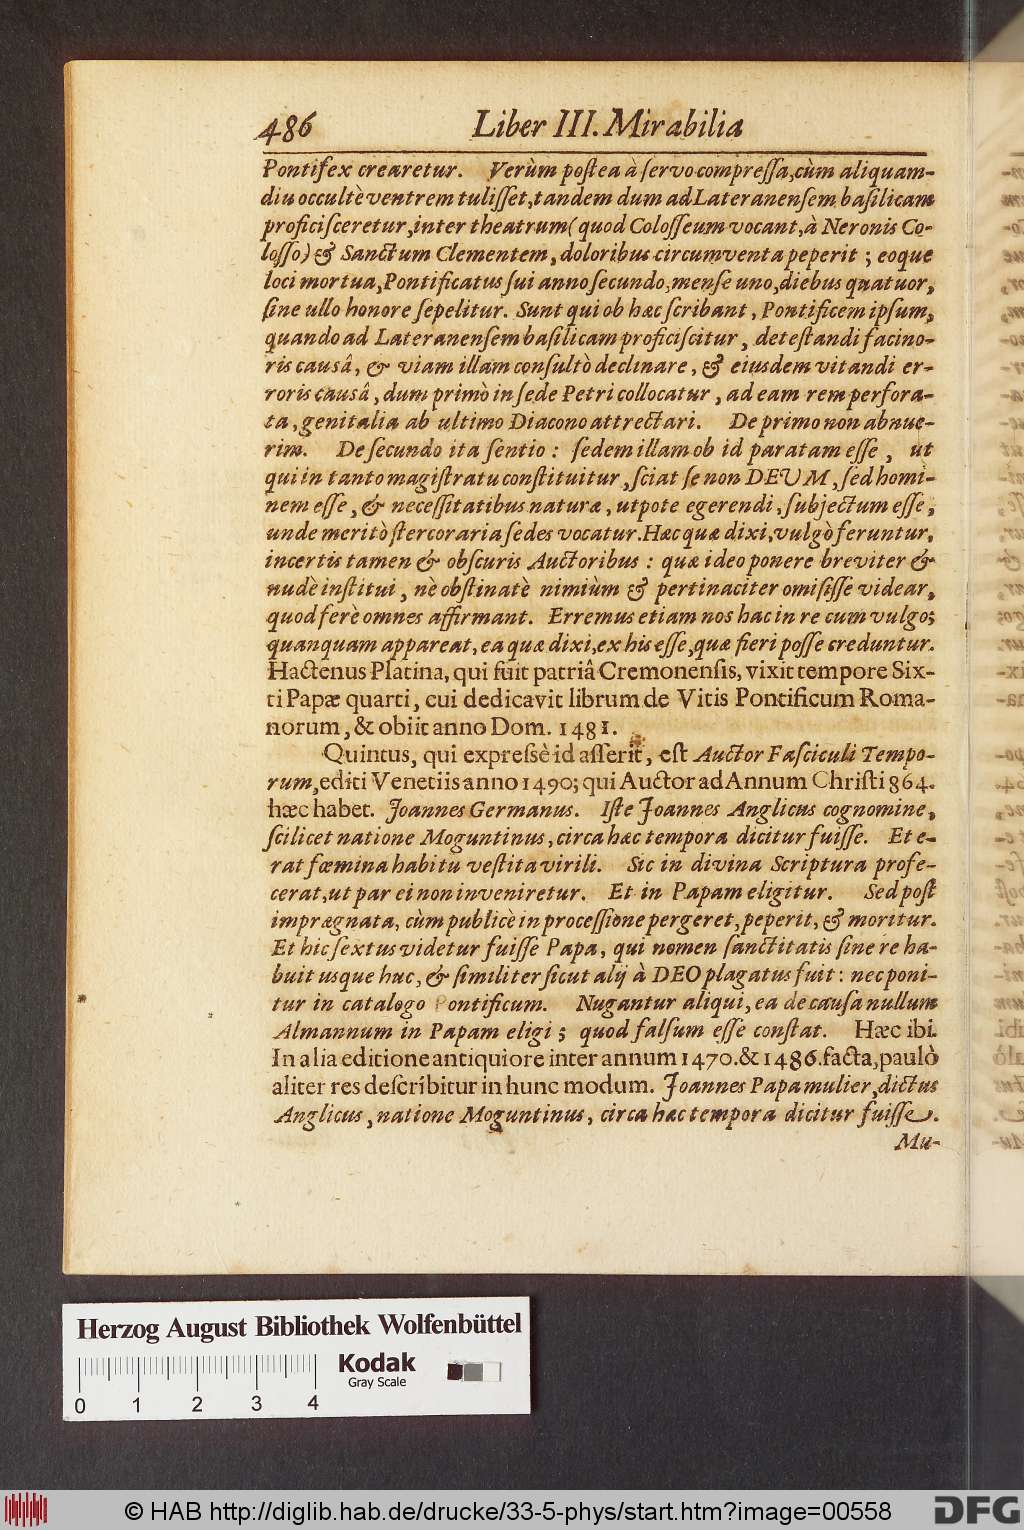 486 Liber III. Mirabilia
Pontifex crearetur. Verùm postea à servo compressa, cùm aliquam-
diu occultè ventrem tulisset, tandem dum ad Lateranensem basilicam
proficisceretur, inter theatrum (quod Colosseum vocant, à Neronis Co-
losso) & Sanctum Clementem, doloribus circumventa peperit; eoque
loci mortua, Pontificatus sui anno secundo, mense uno, diebus quatuor,
sine ullo honore sepelitur. Sunt qui ob hæc scribant, Pontificem ipsum,
quando ad Lateranensem basilicam proficiscitur, detestandi facino-
ris causâ, & viam illam consultò declinare, & eiusdem vitandi er-
roris causâ, dum primò in sede Petri collocatur, ad eam rem perfora-
ta, genitalia ab ultimo Diacono attrectari. De primo non abnue-
rim. De secundo ita sentio: sedem illam ob id paratam esse, ut
qui in tanto magistratu constituitur, sciat se non DEUM, sed homi-
nem esse, & necessitatibus naturæ, utpote egerendi, subjectum esse,
unde meritò stercoraria sedes vocatur. Hæc quæ dixi, vulgò feruntur,
incertis tamen & obscuris Auctoribus: quæ ideo ponere breviter &
nudè institui, nè obstinatè nimiùm & pertinaciter omisisse videar,
quod ferè omnes affirmant. Erremus etiam nos hac in re cum vulgo;
quanquam appareat, ea quæ dixi, ex his esse, quæ fieri posse creduntur.
Hactenus Platina, qui fuit patriâ Cremonensis, vixit tempore Six-
ti Papæ quarti, cui dedicavit librum de Vitis Pontificum Roma-
norum, & obiit anno Dom. 1481.
Quintus, qui expressè id asserit, est Auctor Fasciculi Tempo-
rum, editi Venetiis anno 1490; qui Auctor ad Annum Christi 864.
hæc habet. Joannes Germanus. Iste Joannes Anglicus cognomine,
scilicet natione Moguntinus, circa hæc tempora dicitur fuisse. Et e-
rat fœmina habitu vestita virili. Sic in divina Scriptura profe-
cerat, ut par ei non inveniretur. Et in Papam eligitur. Sed post
imprægnata, cùm publicè in processione pergeret, peperit, & moritur.
Et hic sextus videtur fuisse Papa, qui nomen sanctitatis sine re ha-
buit usque huc, & similiter sicut alij à DEO plagatus fuit: nec poni-
tur in catalogo Pontificum. Nugantur aliqui, ea de causa nullum
Almannum in Papam eligi; quod falsum esse constat. Hæc ibi.
In alia editione antiquiore inter annum 1470. & 1486. facta, paulò
aliter res describitur in hunc modum. Joannes Papa mulier, dictus
Anglicus, natione Moguntinus, circa hæc tempora dicitur fuisse.
Mu-
Herzog August Bibliothek Wolfenbüttel
Kodak
Gray Scale
0 1 2 3 4
© HAB http://diglib.hab.de/drucke/33-5-phys/start.htm?image=00558
DFG